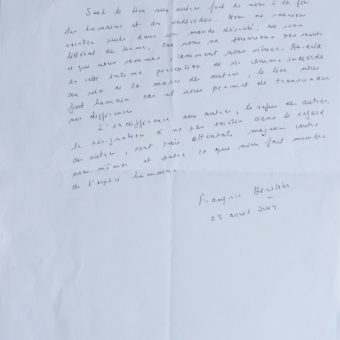 Seul le lien aux autres fait de nous à la fois
des humains et des individus. Nous ne saurions
exister seuls dans un monde déserté, au sens
littéral du terme, car nous ne pourrions pas savoir
ce que nous sommes, comment nous
de cette perception de soi comme individu
au sein de la masse des autres, le lien nous
fait humain car il nous permet de transcender
nos différences
L'indifférence aux autres, le refus des autres,
la résignation à ne pas exister dans le regard
des autres, sont trois attentats majeurs contre
nous-mêmes et contre ce que nous fait membre
de l'espèce humaine.
Françoise
23 avril 2004